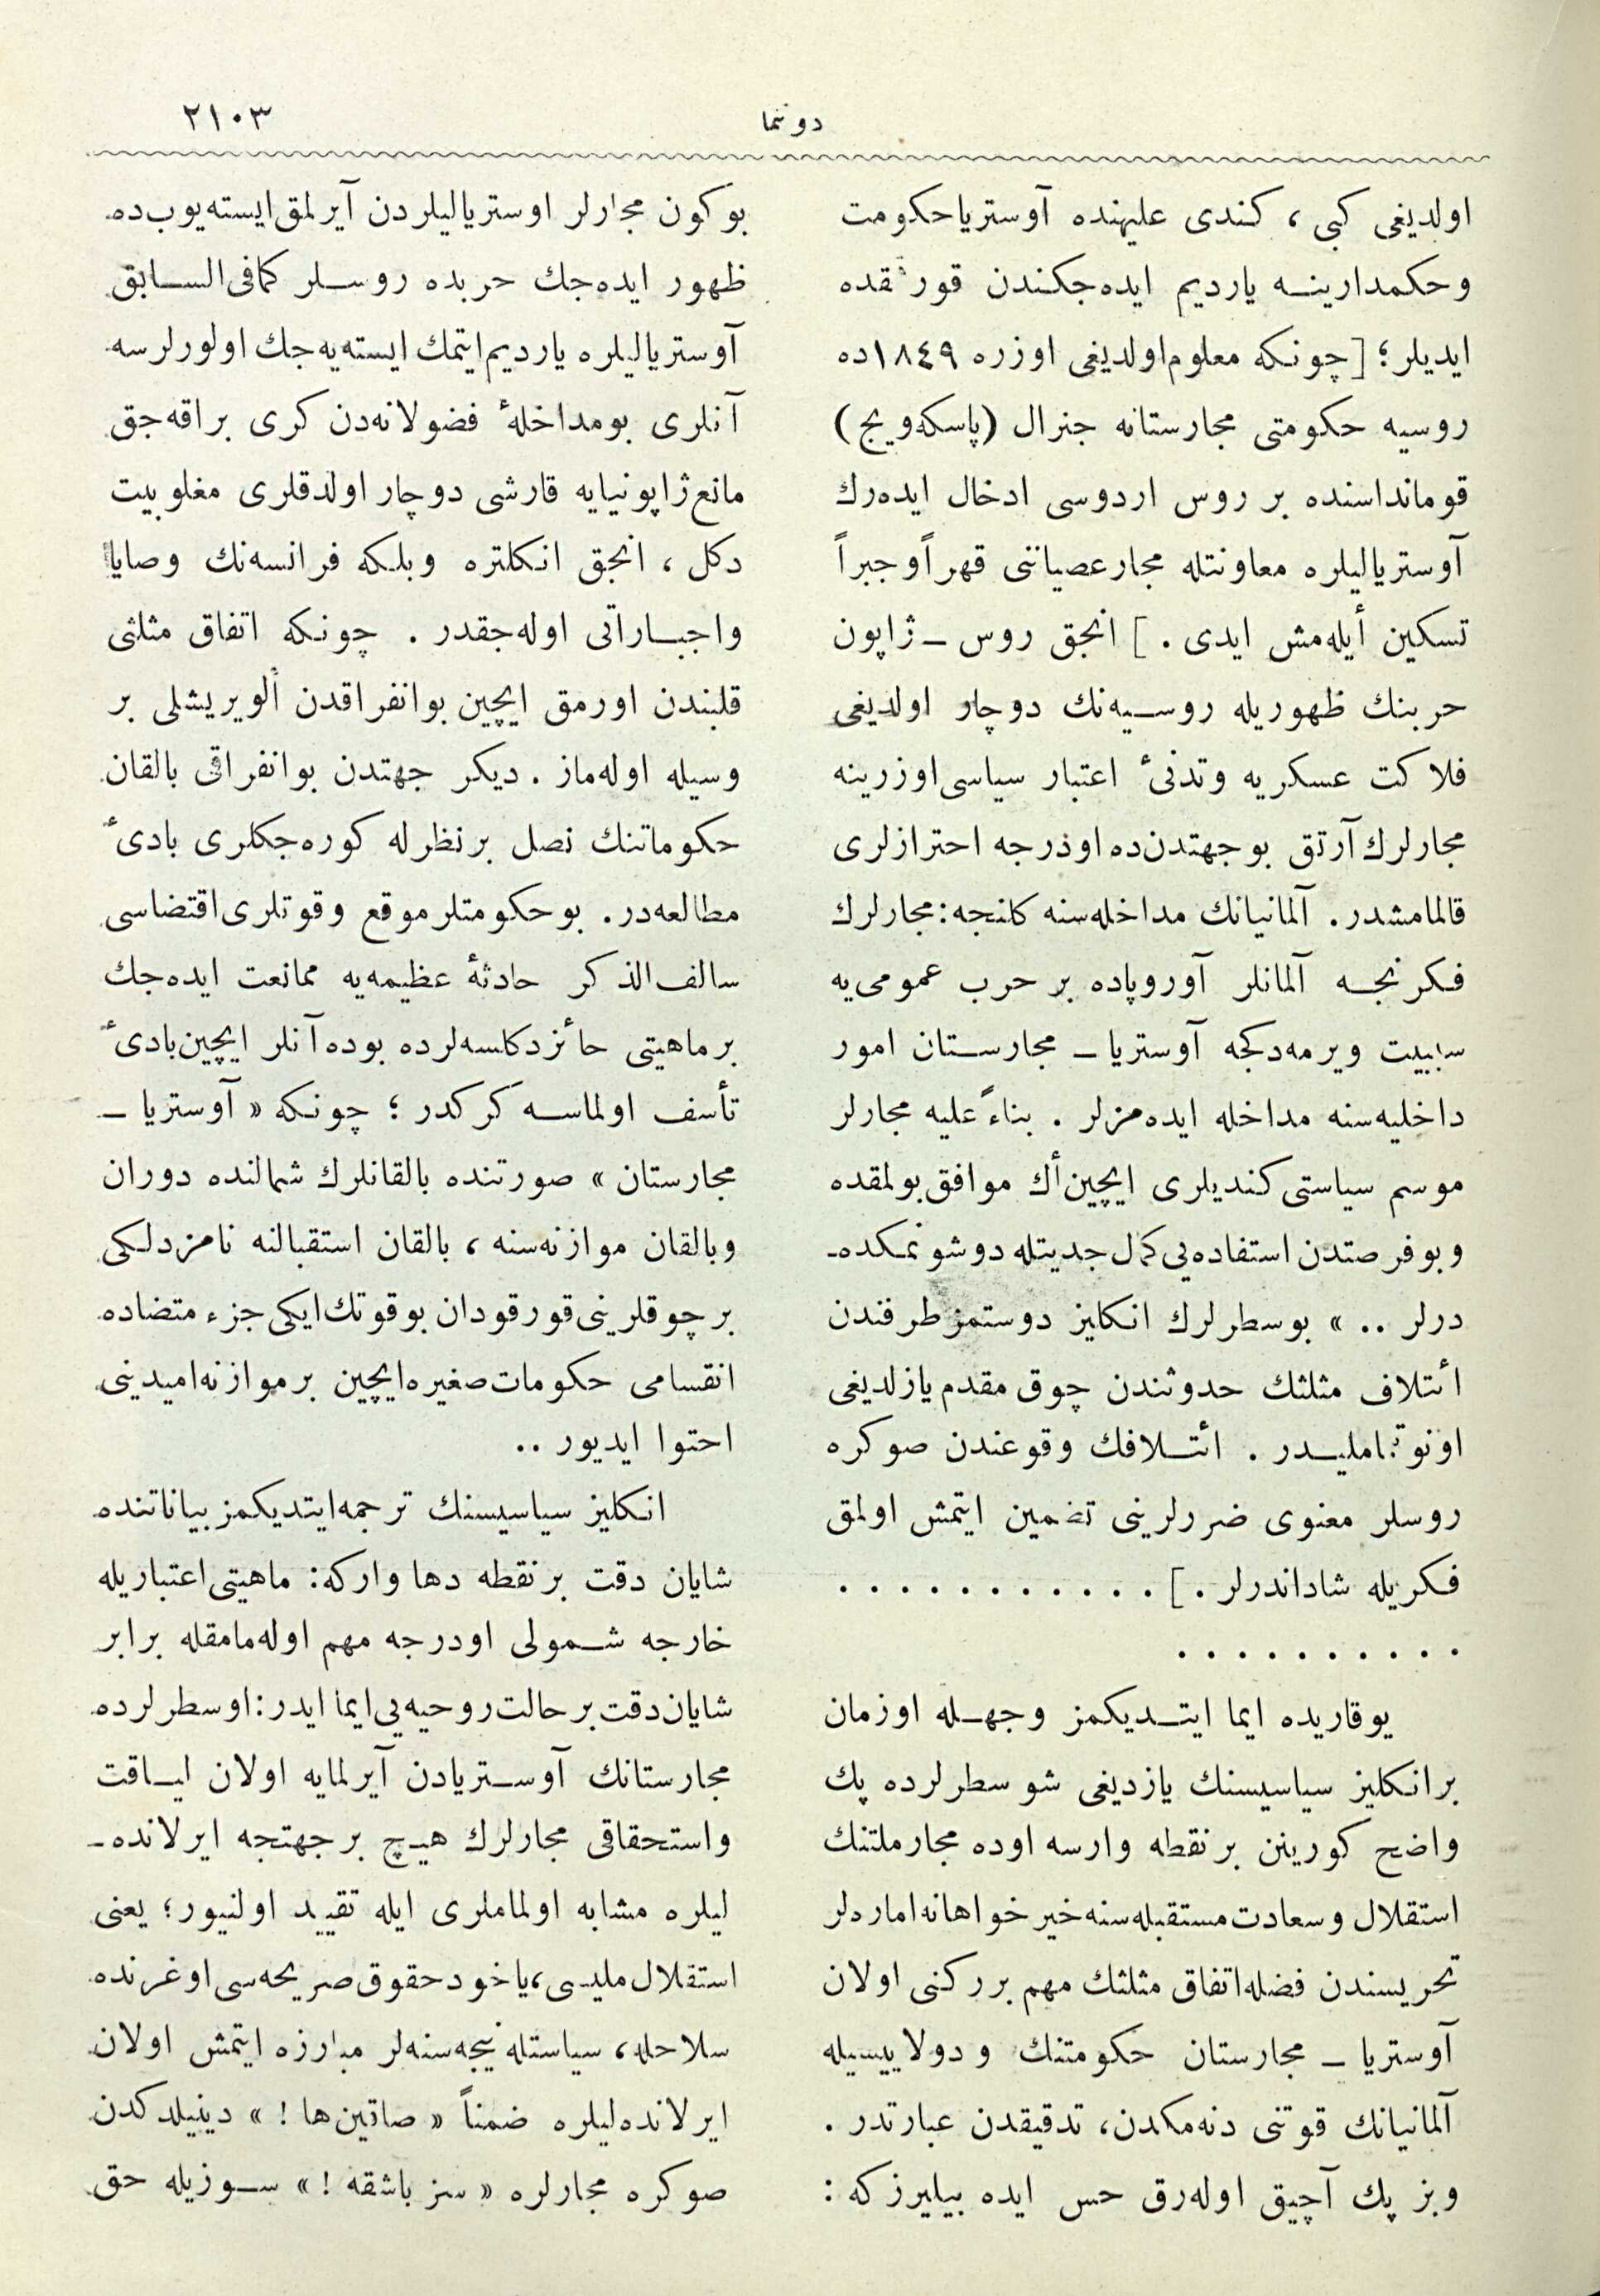 دوننما
٢١٠٣
اولديغى كبى ، كندى عليهنده آوستريا حكومت
وحكمدارينه يارديم ايده‌جكندن قورقده
ايديلر؛ [چونكه معلوم اولديغى اوزره ١٨٤٩ ده
روسيه حكومتى مجارستانه جنرال (پاسكه‌ويج)
قومانداسنده بر روس اردوسى ادخال ايده‌رك
آوستريا‌ليلره معاونتله مجار عصياننى قهراً وجبراً
تسكين أيله‌مش ايدى . ] انجق روس ــ ژاپون
حربنك ظهوريله روسيه‌نك دوچار اولديغى
فلاكت عسكريه وتدنىٔ اعتبار سياسى اوزرينه
مجارلرك آرتق بوجهتدن‌ده اوذرجه احترازلرى
قالمامشدر. آلمانيانك مداخله‌سنه كلنجه: مجارلرك
فكرنجه آلمانلر آوروپاده بر حرب عمومى‌يه
سببيت ويرمه‌دكجه آوستريا ــ مجارستان امور
داخليه‌سنه مداخله ايده‌مزلر . بناءً عليه مجارلر
موسم سياستى كنديلرى ايچين أك موافق بولمقده
وبوفرصتدن استفاده‌يى كمال جديتله دوشونمكده‌ـ
درلر .. » بوسطرلرك انكليز دوستمز طرفندن
ائتلاف مثلثك حدوثندن چوق مقدم يازلديغى
اونوتمامليدر . ائتلافك وقوعندن صوكره
روسلر معنوى ضررلرينى تضمين ايتمش اولمق
فكريله شاداندرلر . ] . . . . . . . . . . .
. . . . . . . . . .
يوقاريده ايما ايتديكمز وجهله اوزمان
برانكليز سياسيسنك يازديغى شو سطرلرده پك
واضح كورينن بر نقطه وارسه اوده مجارملتنك
استقلال وسعادت مستقبله‌سنه خيرخواهانه اماره‌لر
تحريسندن فضله اتفاق مثلثك مهم بر ركنى اولان
آوستريا ــ مجارستان حكومتنك ودولاييسيله
آلمانيانك قوتنى دنه‌مكدن، تدقيقدن عبارتدر .
وبز پك آچيق اوله‌رق حس ايده بيليرزكه :
بوكون مجارلر اوستريا‌ليلردن آيرلمق ايسته‌يوب‌ده
ظهور ايده‌جك حربده روسلر كمافى‌السابق
آوستريا‌ليلره يارديم ايتمك ايسته‌يه‌جك اولورلرسه
آنلرى بومداخلهٔ فضولانه‌دن كرى براقه‌جق
مانع ژاپونيايه قارشى دوچار اولدقلرى مغلوبيت
دكل ، انجق انكلتره وبلكه فرانسه‌نك وصايا
واجباراتى اوله‌جقدر . چونكه اتفاق مثلثى
قلبندن اورمق ايچين بوانفراقدن ألويريشلى بر
وسيله اوله‌ماز . ديكر جهتدن بوانفراقى بالقان
حكوماتنك نصل برنظرله كوره‌جكلرى بادىٔ
مطالعه‌در. بوحكومتلر موقع وقوتلرى اقتضاسى
سالف‌الذكر حادثهٔ عظيمه‌يه ممانعت ايده‌جك
برماهيتى حائز دكلسه‌لرده بوده آنلر ايچين بادىٔ
تأسف اولماسه كركدر ؛ چونكه « آوستريا ــ
مجارستان » صورتنده بالقانلرك شمالنده دوران
وبالقان موازنه‌سنه ، بالقان استقبالنه نامزدلكى
برچوقلرينى قورقودان بوقوتك ايكى جزء متضاده
انقسامى حكومات صغيره ايچين برموازنه اميدينى
احتوا ايديور ..
انكليز سياسيسنك ترجمه ايتديكمز بياناتنده
شايان دقت برنقطه دها واركه: ماهيتى اعتباريله
خارجه شمولى اودرجه مهم اوله‌مامقله برابر
شايان دقت برحالت روحيه‌يى ايما ايدر: اوسطرلرده
مجارستانك آوسترياد‌ن آيرلمايه اولان لياقت
واستحقاقى مجارلرك هيچ برجهتجه ايرلانده‌ـ
ليلره مشابه اولماملرى ايله تقييد اولنيور؛ يعنى
استقلال مليسى، ياخود حقوق صريحه‌سى اوغرنده
سلاحله، سياستله نيجه‌سنه‌لر مبارزه ايتمش اولان
ايرلانده‌ليلره ضمناً « صاتين‌ها ! » دينيلدكدن
صوكره مجارلره « سز باشقه ! » سوزيله حق